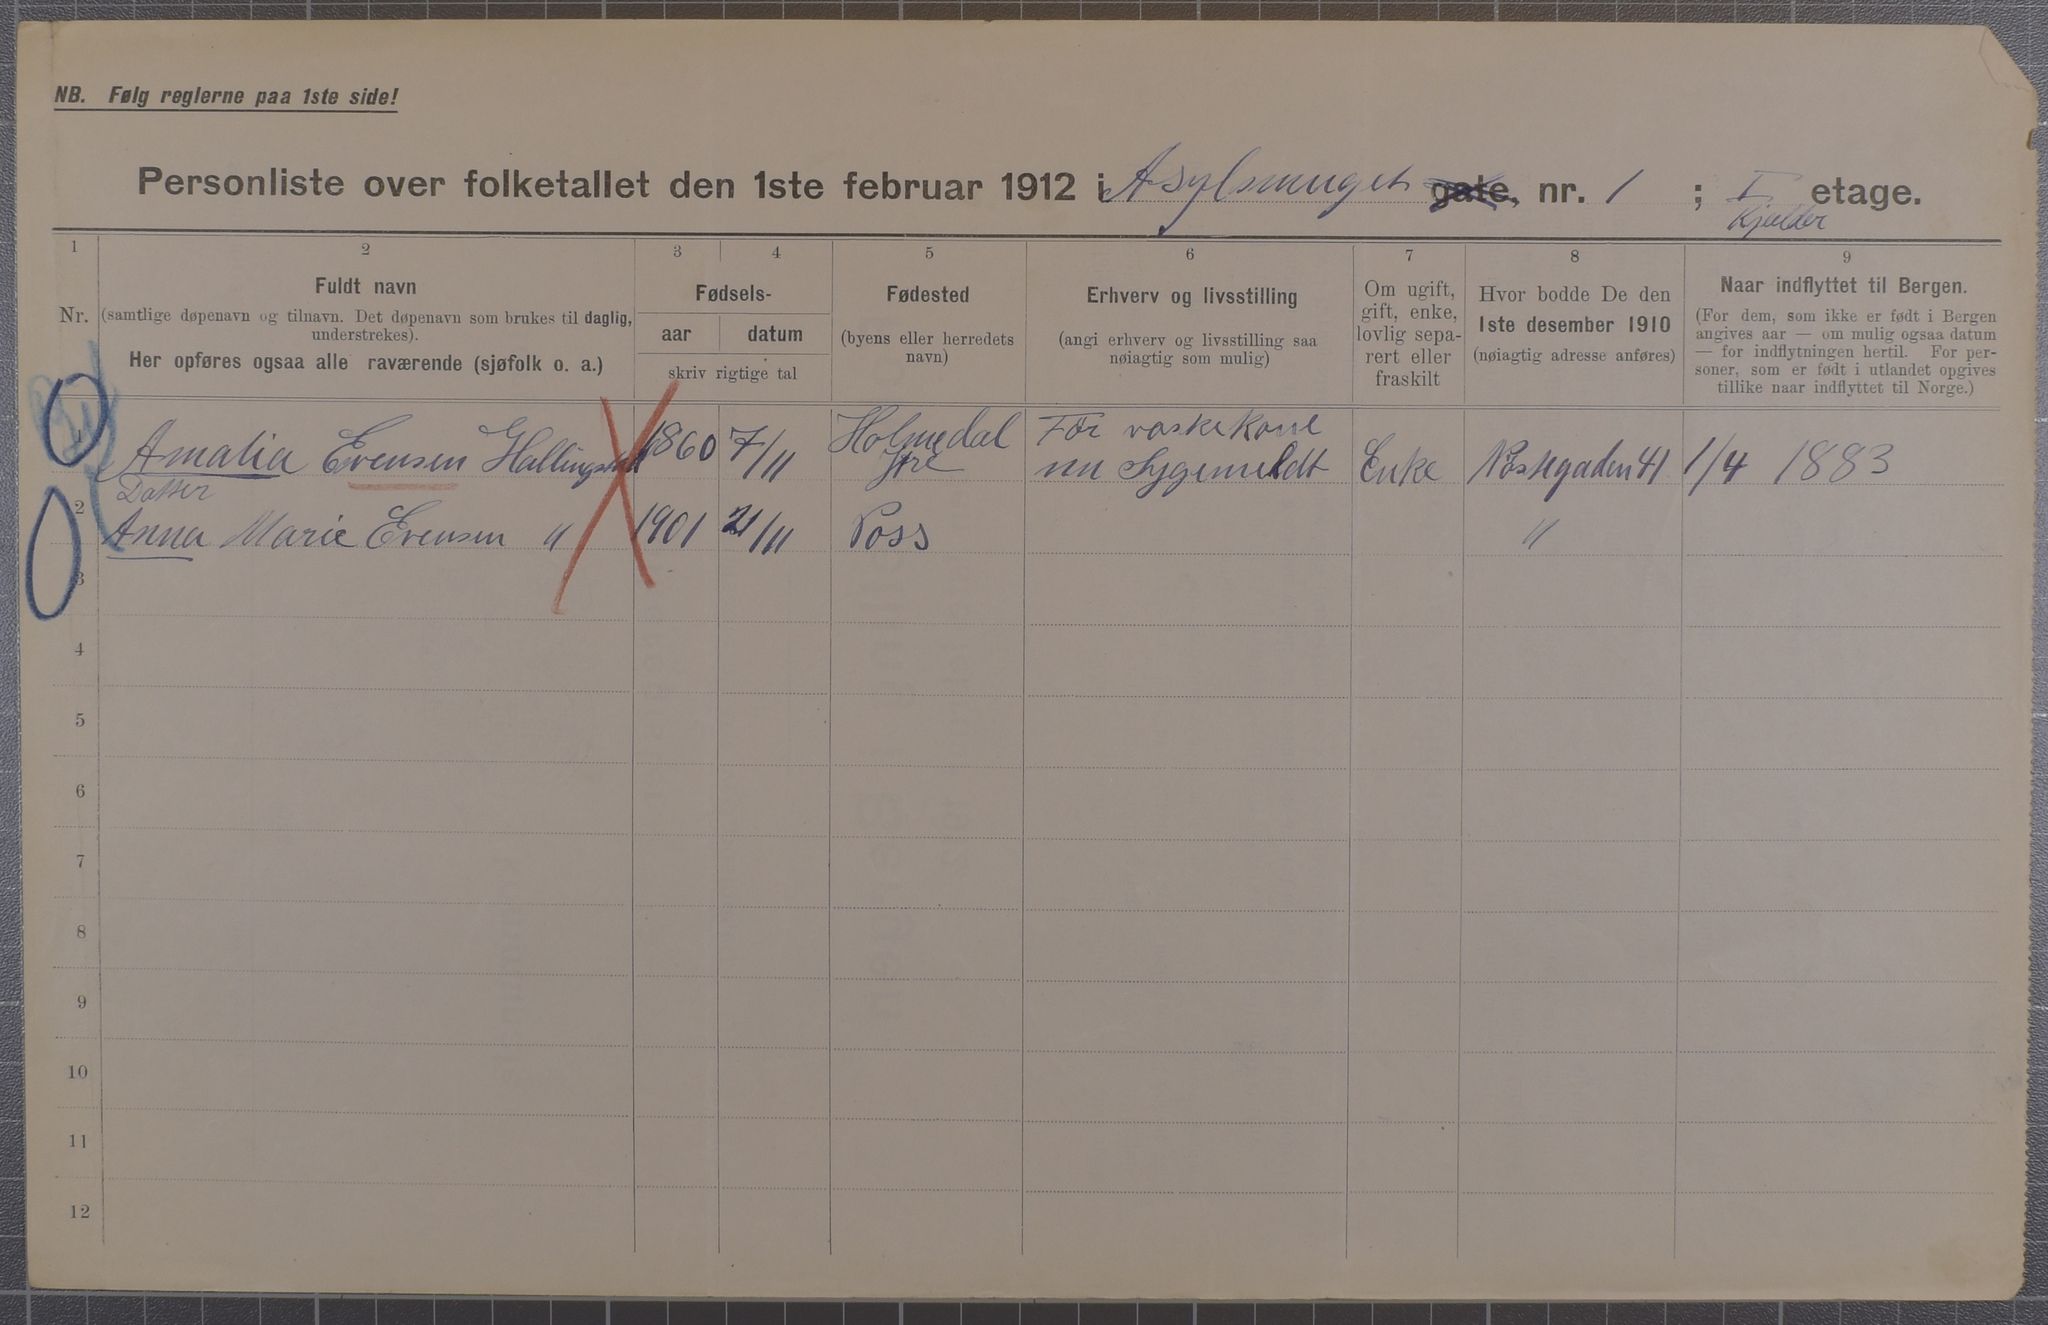 NB. Følg reglerne paa 1ste side!
Personliste over folketallet den 1ste februar 1912 i Asylsmuget gate, nr. 1 ; I etage.
Kjælder
1 2 3 4 5 6 7 8 9
Nr.
Fuldt navn
(samtlige døpenavn og tilnavn. Det døpenavn som brukes til daglig,
understrekes).
Her opføres ogsaa alle raværende (sjøfolk o. a.)
Fødsels-
aar datum
skriv rigtige tal
Fødested
(byens eller herredets
navn)
Erhverv og livsstilling
(angi erhverv og livsstilling saa
nøiagtig som mulig)
Om ugift,
gift, enke,
lovlig sepa-
rert eller
fraskilt
Hvor bodde De den
1ste desember 1910
(nøiagtig adresse anføres)
Naar indflyttet til Bergen.
(For dem, som ikke er født i Bergen
angives aar — om mulig ogsaa datum
— for indflytningen hertil. For per-
soner, som er født i utlandet opgives
tillike naar indflyttet til Norge.)
1 Amalia Evensen 1860 7/11 Holmedal Før vaskekone
nu Sygemeldt Enke Nøstegaden 41 1/4 1883
Datter
2 Anna Marie Evensen " 1901 21/11 Voss "
3
4
5
6
7
8
9
10
11
12